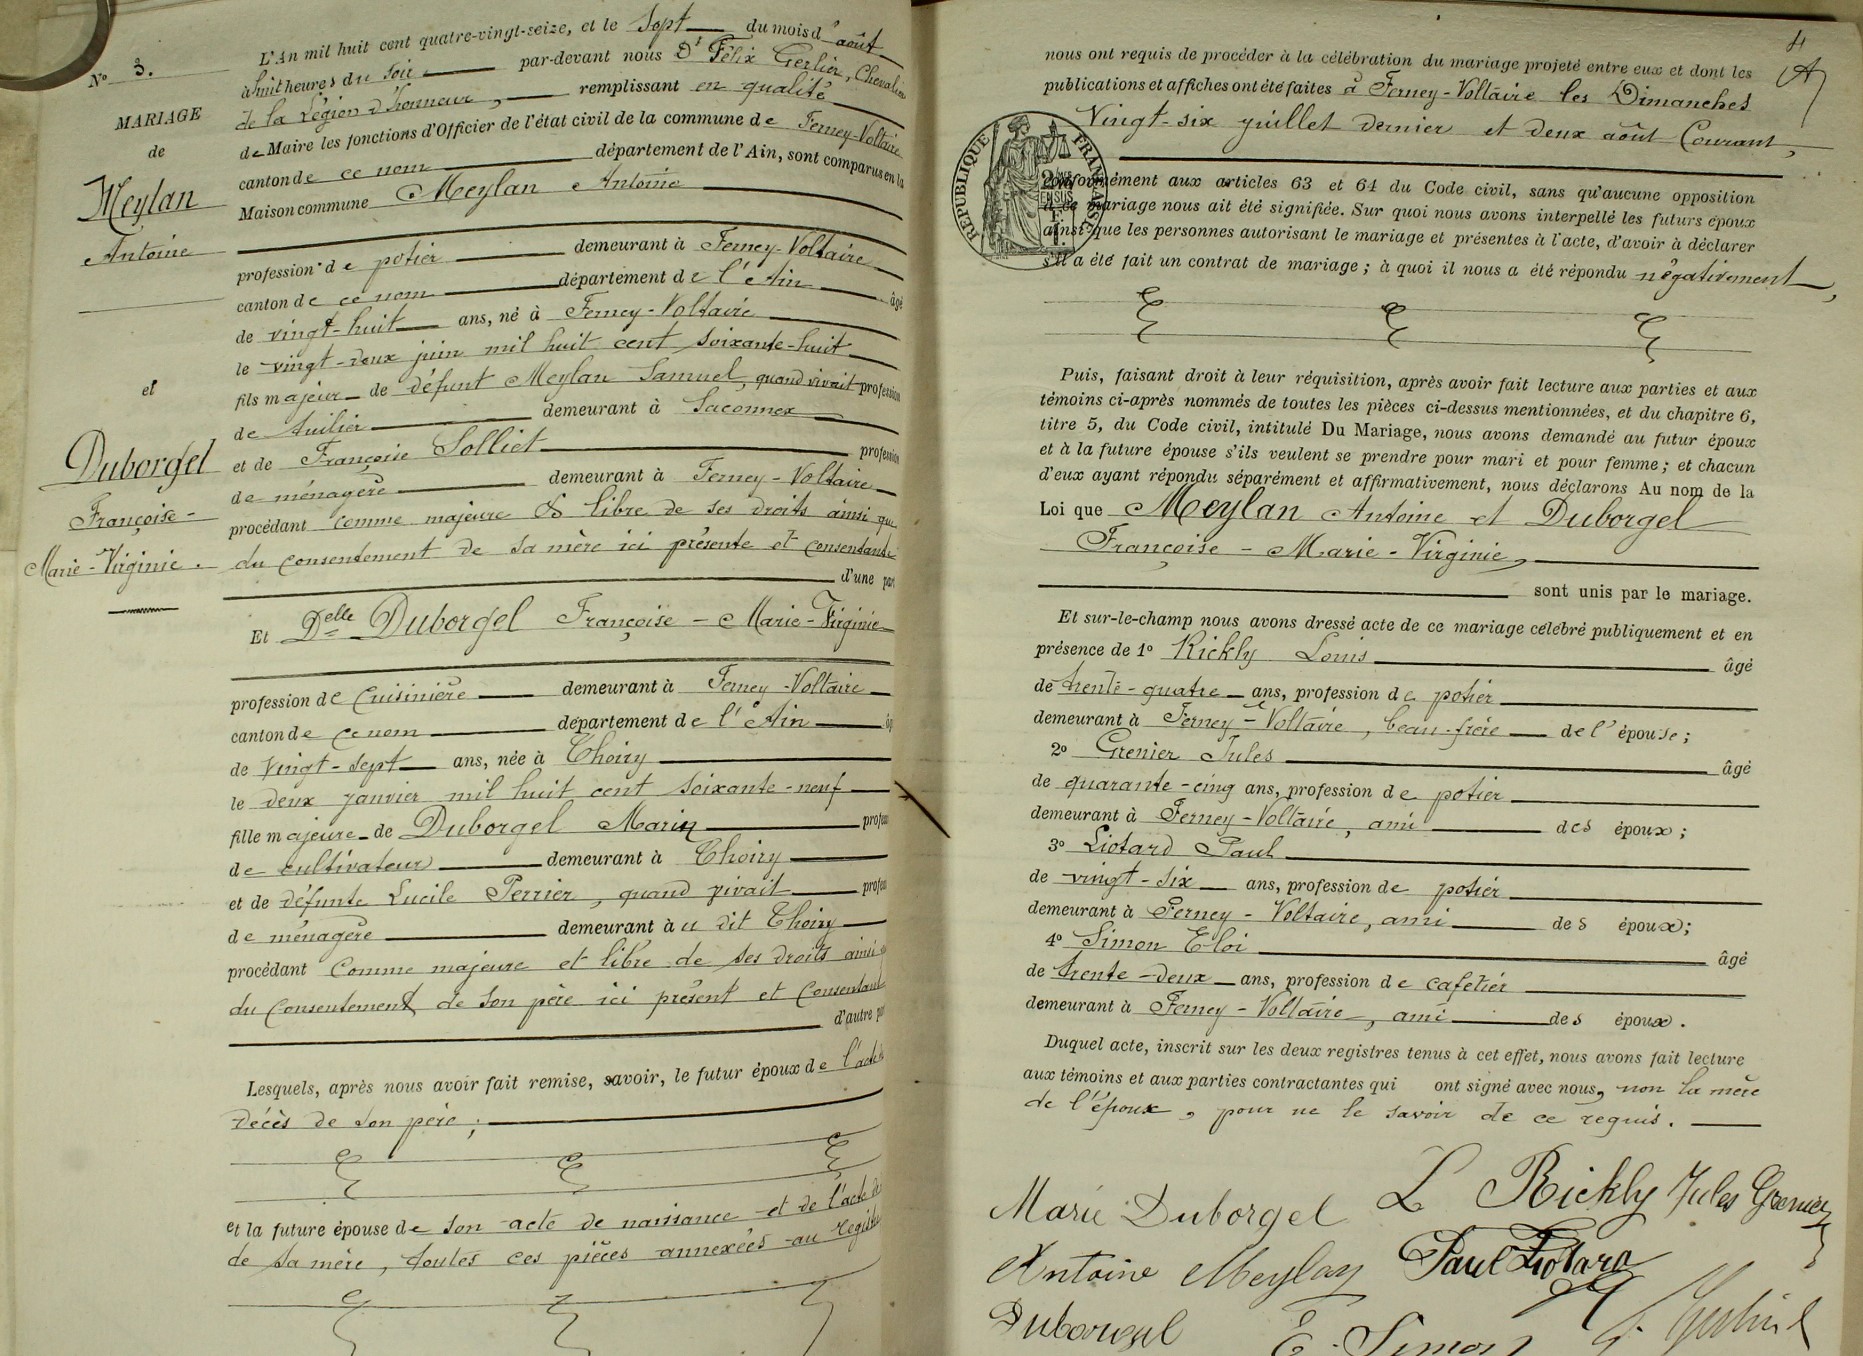 N° 3.
MARIAGE
de
Meylan
Antoine
et
Duborgel
Françoise -
Marie - Virginie.
L'An mil huit cent quatre-vingt-seize, et le sept du mois d'août
à huit heures du soir par-devant nous Dr Félix Gerlier, Chevalier
de la Légion d'honneur, remplissant en qualité
de Maire les fonctions d'Officier de l'état civil de la commune de Ferney-Voltaire
canton de ce nom département de l'Ain, sont comparus en la
Maison commune Meylan Antoine
profession de potier demeurant à Ferney-Voltaire
canton de ce nom département de l'Ain âgé
de vingt-huit ans, né à Ferney-Voltaire
le vingt-deux juin mil huit cent soixante-huit
fils majeur de défunt Meylan Samuel, quand vivait profession
de tuilier demeurant à Saconnex
et de Françoise Solliet profession
de ménagère demeurant à Ferney-Voltaire
procédant comme majeure & libre de ses droits ainsi que
du consentement de sa mère ici présente et consentante
d'une part
Et Delle Duborgel Françoise - Marie - Virginie
profession de cuisinière demeurant à Ferney-Voltaire
canton de ce nom département de l'Ain
de vingt-sept ans, née à Thoiry
le deux janvier mil huit cent soixante-neuf
fille majeure de Duborgel Marin profes
de cultivateur demeurant à Thoiry
et de défunte Lucile Perrier, quand vivait profes
de ménagère demeurant à u dit Thoiry
procédant comme majeure et libre de ses droits ainsi
du consentement de son père ici présent et consentant
d'autre part
Lesquels, après nous avoir fait remise, savoir, le futur époux de l'acte de
décès de son père ;
et la future épouse de son acte de naissance et de l'acte de
de sa mère, toutes ces pièces annexées au registre
4
nous ont requis de procéder à la célébration du mariage projeté entre eux et dont les
publications et affiches ont été faites à Ferney-Voltaire les Dimanches
Vingt-six juillet dernier et deux août Courant,
RÉPUBLIQUE FRANÇAISE
conformément aux articles 63 et 64 du Code civil, sans qu'aucune opposition
à ce mariage nous ait été signifiée. Sur quoi nous avons interpellé les futurs époux
ainsi que les personnes autorisant le mariage et présentes à l'acte, d'avoir à déclarer
s'il a été fait un contrat de mariage ; à quoi il nous a été répondu négativement,
Puis, faisant droit à leur réquisition, après avoir fait lecture aux parties et aux
témoins ci-après nommés de toutes les pièces ci-dessus mentionnées, et du chapitre 6,
titre 5, du Code civil, intitulé Du Mariage, nous avons demandé au futur époux
et à la future épouse s'ils veulent se prendre pour mari et pour femme ; et chacun
d'eux ayant répondu séparément et affirmativement, nous déclarons Au nom de la
Loi que Meylan Antoine et Duborgel
Françoise - Marie - Virginie,
sont unis par le mariage.
Et sur-le-champ nous avons dressé acte de ce mariage célébré publiquement et en
présence de 1° Rickly Louis âgé
de trente-quatre ans, profession de potier
demeurant à Ferney-Voltaire, beau-frère de l'épouse ;
2° Grenier Jules âgé
de quarante-cinq ans, profession de potier
demeurant à Ferney-Voltaire, ami des époux ;
3° Liotard Paul
de vingt-six ans, profession de potier
demeurant à Ferney-Voltaire, ami des époux ;
4° Simon Eloi âgé
de trente-deux ans, profession de cafetier
demeurant à Ferney-Voltaire, ami des époux.
Duquel acte, inscrit sur les deux registres tenus à cet effet, nous avons fait lecture
aux témoins et aux parties contractantes qui ont signé avec nous, non la mère
de l'époux, pour ne le savoir de ce requis.
Marie Duborgel L Rickly Jules Grenier
Antoine Meylan Paul Liotard
Duborgel E. Simon